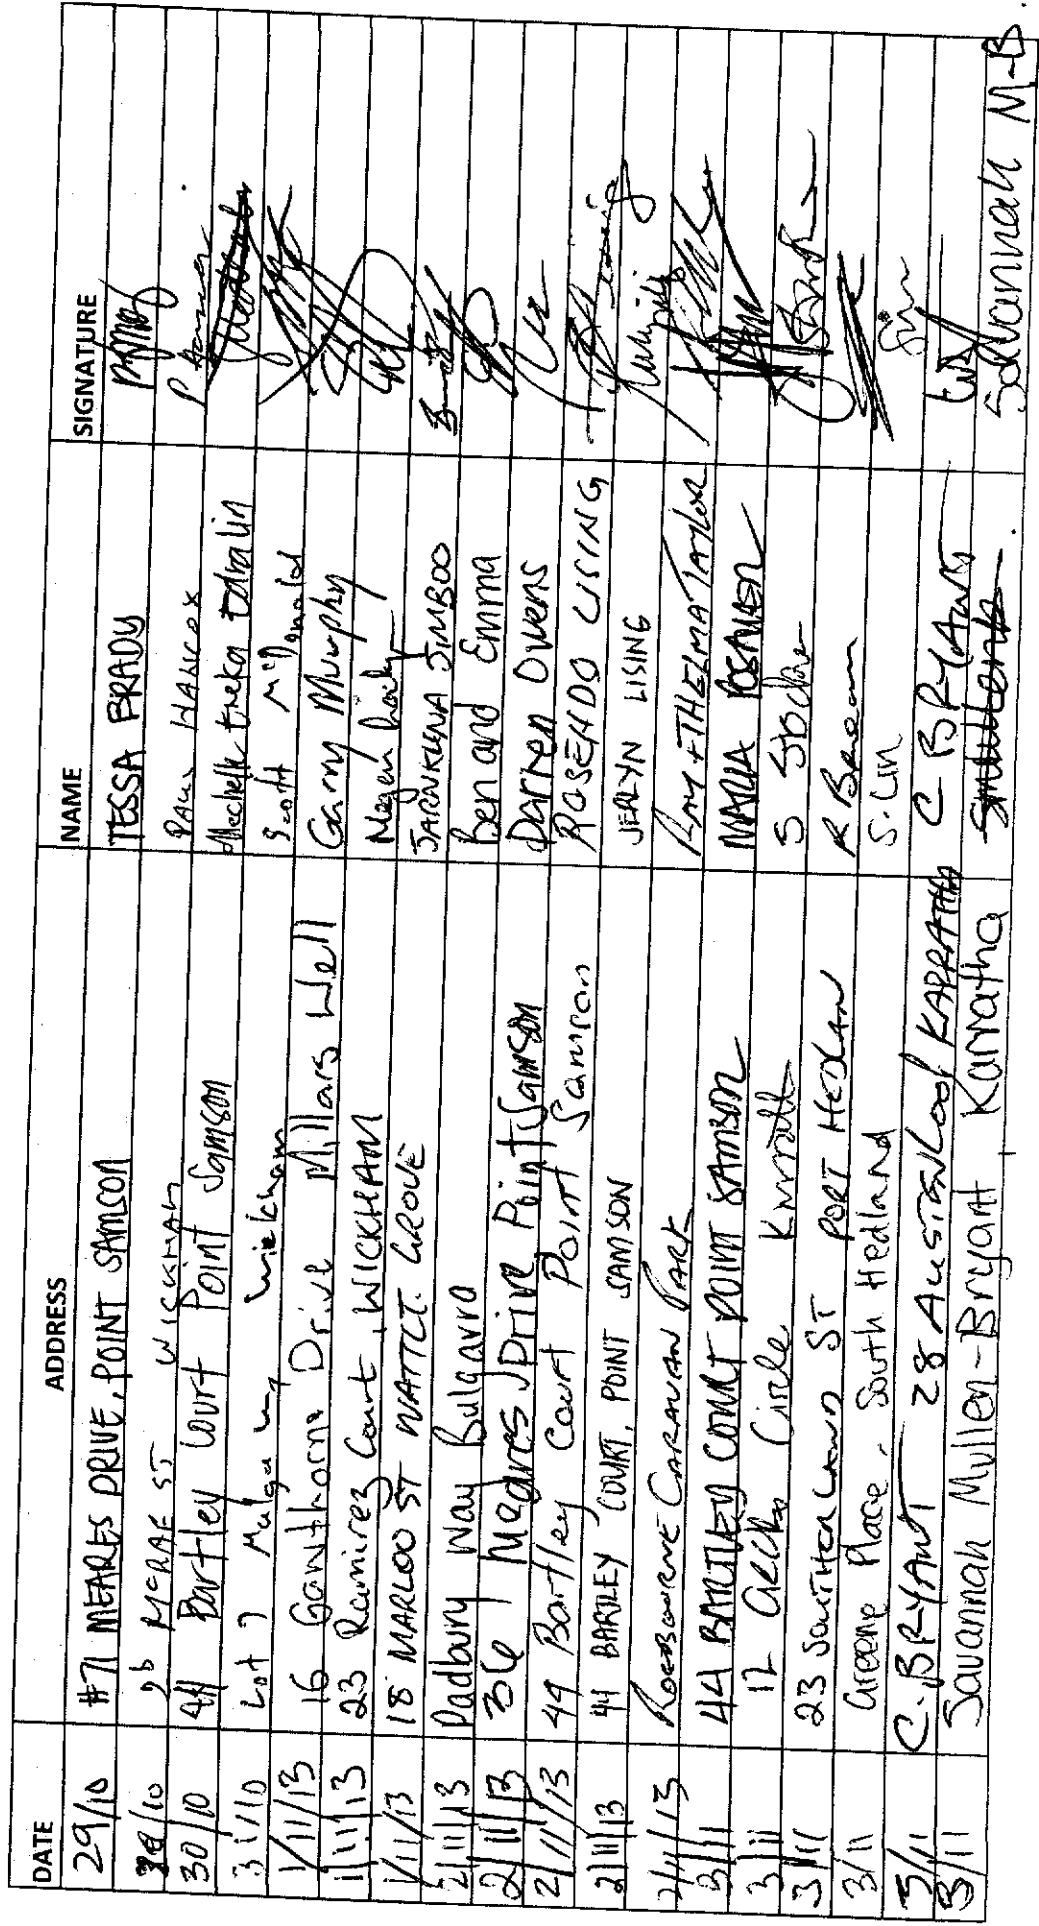 DATE ADDRESS NAME SIGNATURE
29/10 #71 MEARES DRIVE, POINT SAMSON TESSA BRADY
30/10 9b McRAE ST WICKHAM PAUL HANCOX
30/10 44 Bartley Court Point Samson Mechelle
31/10 Lot 7 Mulga Wickham Scott McDonald
1/11/13 16 Gawthorne Drive Millars Well Garry Murphy
1/11/13 23 Ramirez Court, WICKHAM Megan
1/11/13 18 MARLOO ST WATTLE GROVE JARNKUNA JIMBOO
2/11/13 Padbury Way Bulgarra Ben and Emma
2/11/13 36 Meares Drive Point Samson Darren Owens
2/11/13 44 Bartley Court Point Samson ROSENDO LISING
2/11/13 44 BARTLEY COURT, POINT SAMSON JERLYN LISING
2/11/13 ROEBOURNE CARAVAN PARK RAY + THELMA TAYLOR
3/11 44 BARTLEY COURT POINT SAMSON MARIA
3/11 12 Circle S
3/11 23 SUTHERLAND ST PORT HEDLAN R
3/11 Greene Place, South Hedland S. Lin
3/11 C. BRYANT 28 Austin Loop KARRATHA C BRYANT
3/11 Savannah Mullen-Bryant Karratha Smullenb Savannah M-B